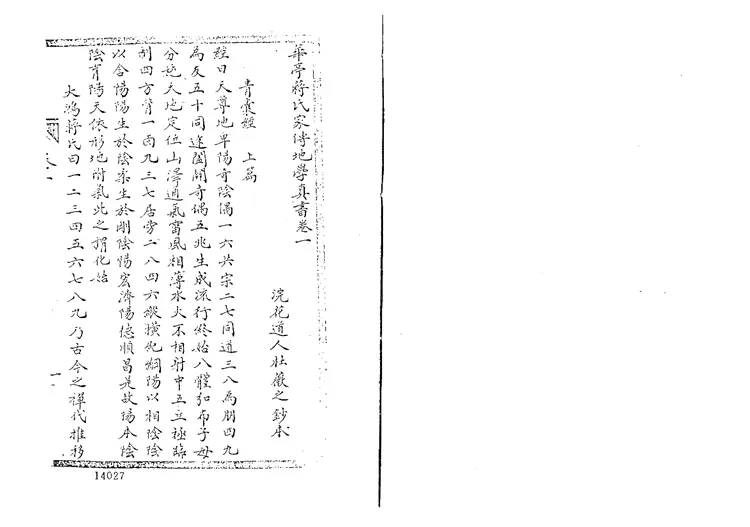 華亭蔣氏家傳地學真書卷一
浣花道人杜巖之鈔本
青囊經 上篇
經曰天尊地卑陽奇陰偶一六共宗二七同道三八為朋四九
為友五十同途闔闢奇偶五兆生成流行終始八體弘布子母
分施天地定位山澤通氣雷風相薄水火不相射中五立極臨
制四方背一面九三七居旁二八四六縱橫紀綱陽以相陰陰
以含陽陽生於陰柔生於剛陰陽宏濟陽德順昌是故陽本陰
陰育陽天依形地附氣此之謂化始
大鴻蔣氏曰一二三四五六七八九乃古今之禪代推移
卷一
一
14027